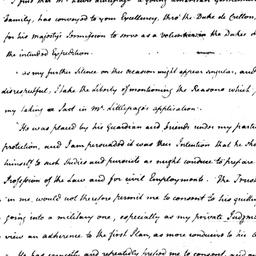 Family, has conveyed to your Excellency, thro' the Duke de Crillon,
for his majesty's Permission to serve as a volunteer in the Duke's d
the intended Expedition.
as my further Silence on this occasion might appear singular, and
disrespectful, I take the Liberty of mentioning the Reasons which
my taking a Part in Mr. Littlepage's application.
"He was placed by his Guardian and Friends under my particu
protection, and I am persuaded it was their Intention that he sho
himself to such Studies and pursuits as might conduce to prepare
Profession of the Law and for civil Employments. The Trust
in me, would not therefore permit me to consent to his quittin
going into a military one, especially as my private Judgme
view an adherence to the first Plan, as more conducive to his
He has earnestly and repeatedly pressed me to consent, and